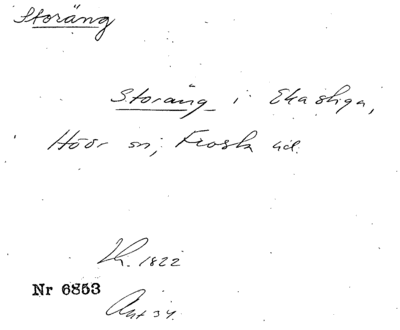 Storäng
Storäng i Ekastiga,
Höör sn, Frosta hd.
Kh. 1822
Nr 6853